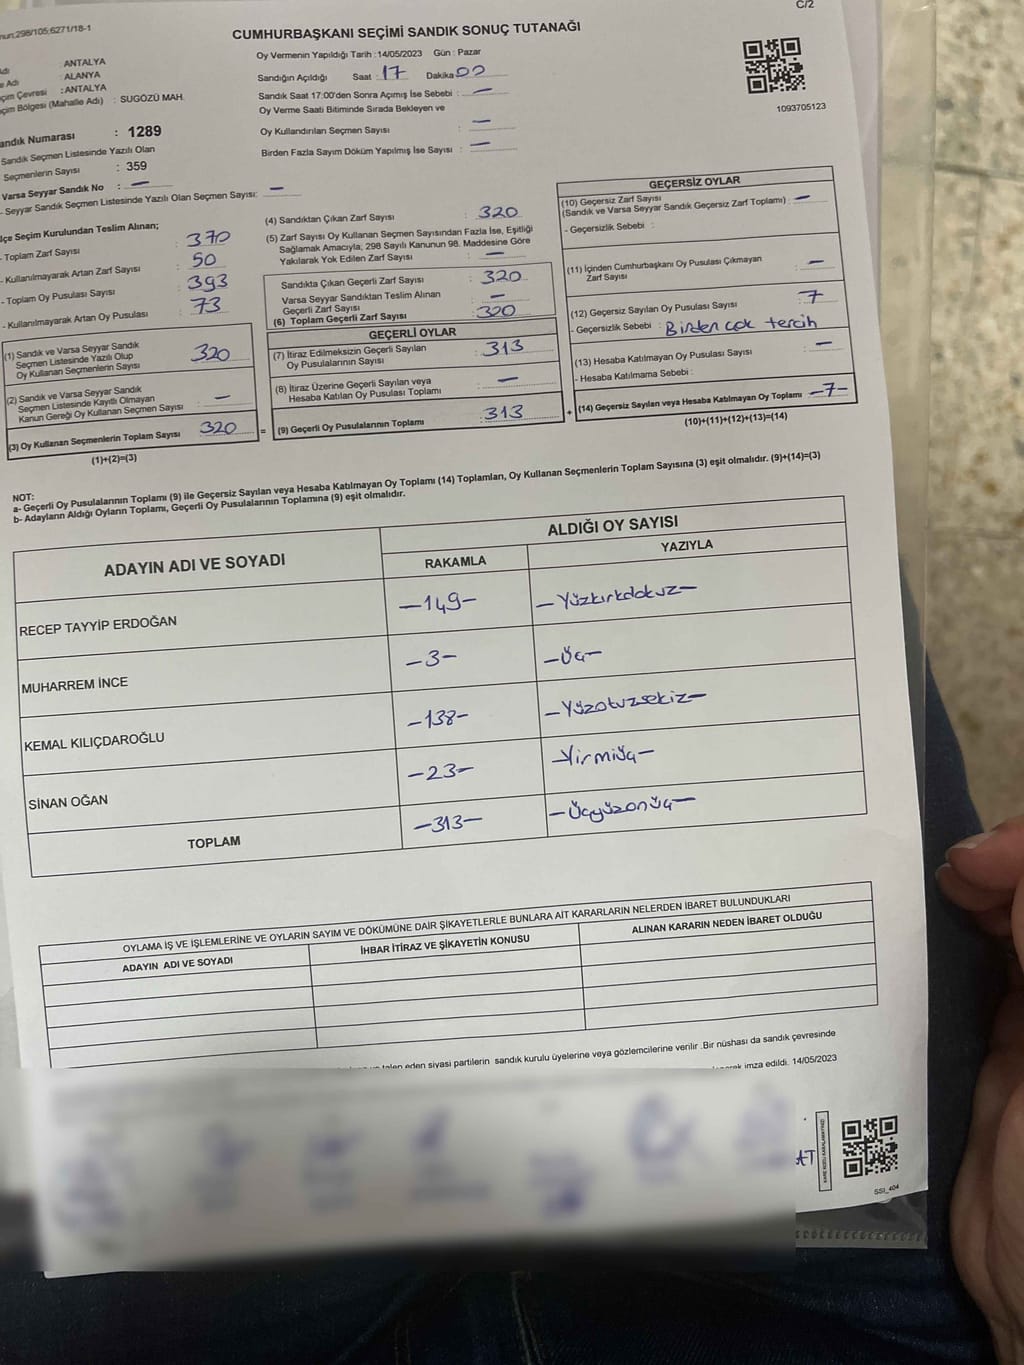 C/2
298/105;6271/18-1
CUMHURBAŞKANI SEÇİMİ SANDIK SONUÇ TUTANAĞI
: ANTALYA
: ALANYA
: ANTALYA
(Mahalle Adı) : SUGÖZÜ MAH.
Numarası : 1289
Sandık Seçmen Listesinde Yazılı Olan
Seçmenlerin Sayısı : 359
Varsa Seyyar Sandık No : —
- Seyyar Sandık Seçmen Listesinde Yazılı Olan Seçmen Sayısı: —
Oy Vermenin Yapıldığı Tarih : 14/05/2023 Gün : Pazar
Sandığın Açıldığı Saat : 17 Dakika 00
Sandık Saat 17:00'den Sonra Açımış İse Sebebi : —
Oy Verme Saati Bitiminde Sırada Bekleyen ve
Oy Kullandırılan Seçmen Sayısı : —
Birden Fazla Sayım Döküm Yapılmış İse Sayısı : —
1093705123
Seçim Kurulundan Teslim Alınan;
- Toplam Zarf Sayısı : 370
- Kullanılmayarak Artan Zarf Sayısı : 50
- Toplam Oy Pusulası Sayısı : 393
- Kullanılmayarak Artan Oy Pusulası : 73
(1) Sandık ve Varsa Seyyar Sandık
Seçmen Listesinde Yazılı Olup
Oy Kullanan Seçmenlerin Sayısı : 320
(2) Sandık ve Varsa Seyyar Sandık
Seçmen Listesinde Kayıtlı Olmayan
Kanun Gereği Oy Kullanan Seçmen Sayısı : —
(3) Oy Kullanan Seçmenlerin Toplam Sayısı 320
(1)+(2)=(3)
(4) Sandıktan Çıkan Zarf Sayısı : 320
(5) Zarf Sayısı Oy Kullanan Seçmen Sayısından Fazla İse, Eşitliği
Sağlamak Amacıyla; 298 Sayılı Kanunun 98. Maddesine Göre
Yakılarak Yok Edilen Zarf Sayısı : —
Sandıkta Çıkan Geçerli Zarf Sayısı : 320
Varsa Seyyar Sandıktan Teslim Alınan
Geçerli Zarf Sayısı : —
(6) Toplam Geçerli Zarf Sayısı : 320
GEÇERLİ OYLAR
(7) İtiraz Edilmeksizin Geçerli Sayılan
Oy Pusulalarının Sayısı : 313
(8) İtiraz Üzerine Geçerli Sayılan veya
Hesaba Katılan Oy Pusulası Toplamı : —
= (9) Geçerli Oy Pusulalarının Toplamı : 313 +
GEÇERSİZ OYLAR
(10) Geçersiz Zarf Sayısı
(Sandık ve Varsa Seyyar Sandık Geçersiz Zarf Toplamı) : —
- Geçersizlik Sebebi :
(11) İçinden Cumhurbaşkanı Oy Pusulası Çıkmayan
Zarf Sayısı : —
(12) Geçersiz Sayılan Oy Pusulası Sayısı : 7
- Geçersizlik Sebebi : Birden çok tercih
(13) Hesaba Katılmayan Oy Pusulası Sayısı : —
- Hesaba Katılmama Sebebi :
(14) Geçersiz Sayılan veya Hesaba Katılmayan Oy Toplamı —7—
(10)+(11)+(12)+(13)=(14)
NOT:
a- Geçerli Oy Pusulalarının Toplamı (9) ile Geçersiz Sayılan veya Hesaba Katılmayan Oy Toplamı (14) Toplamları, Oy Kullanan Seçmenlerin Toplam Sayısına (3) eşit olmalıdır. (9)+(14)=(3)
b- Adayların Aldığı Oyların Toplamı, Geçerli Oy Pusulalarının Toplamına (9) eşit olmalıdır.
ADAYIN ADI VE SOYADI ALDIĞI OY SAYISI
RAKAMLA YAZIYLA
RECEP TAYYİP ERDOĞAN —149— —Yüzkırkdokuz—
MUHARREM İNCE —3— —Üç—
KEMAL KILIÇDAROĞLU —138— —Yüzotuzsekiz—
SİNAN OĞAN —23— —Yirmiüç—
TOPLAM —313— —Üçyüzonüç—
OYLAMA İŞ VE İŞLEMLERİNE VE OYLARIN SAYIM VE DÖKÜMÜNE DAİR ŞİKAYETLERLE BUNLARA AİT KARARLARIN NELERDEN İBARET BULUNDUKLARI
ADAYIN ADI VE SOYADI İHBAR İTİRAZ VE ŞİKAYETİN KONUSU ALINAN KARARIN NEDEN İBARET OLDUĞU
eden siyasi partilerin sandık kurulu üyelerine veya gözlemcilerine verilir .Bir nüshası da sandık çevresinde
imza edildi. 14/05/2023
AT
SSI_404